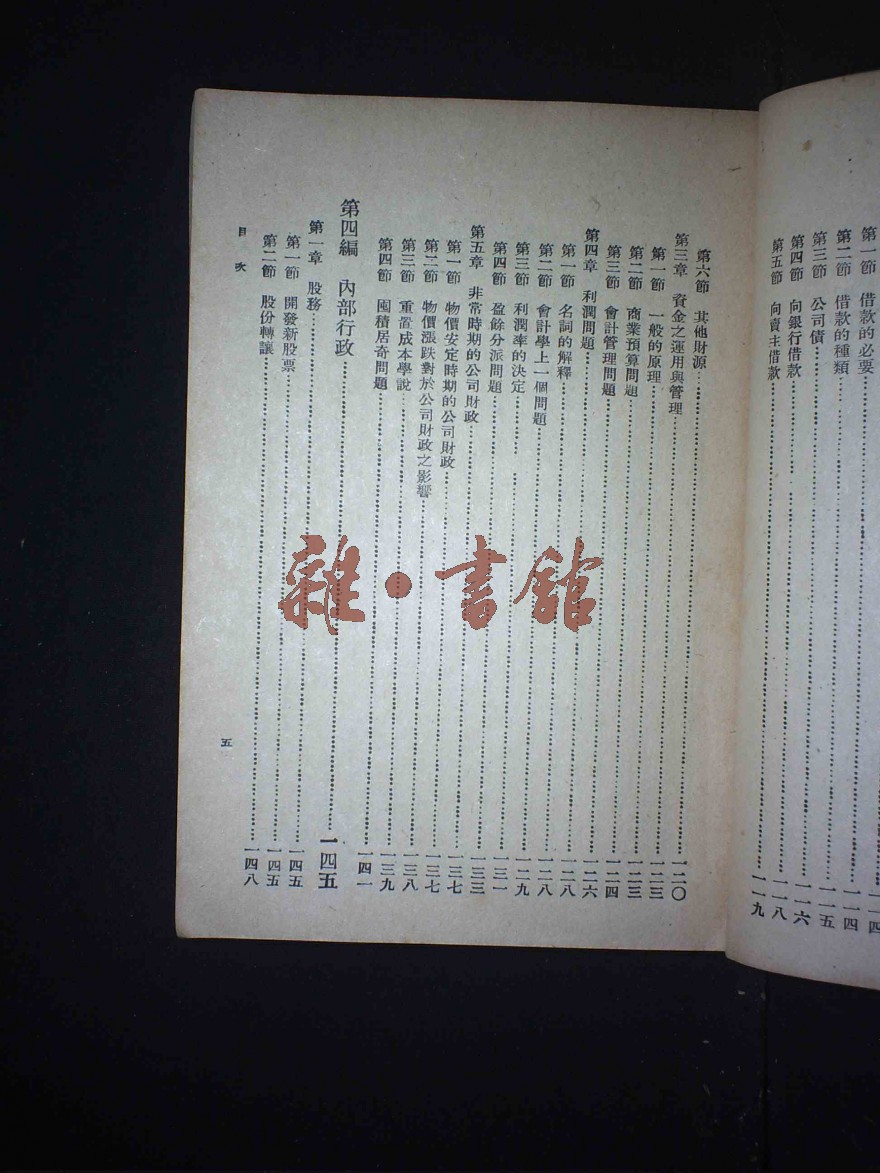 第一節 借款的必要……一一四
第二節 借款的種類……一一五
第三節 公司債……一一六
第四節 向銀行借款……一一八
第五節 向賣主借款……一一九
第六節 其他財源……一二〇
第三章 資金之運用與管理……一二三
第一節 一般的原理……一二三
第二節 商業預算問題……一二四
第三節 會計管理問題……一二六
第四章 利潤問題……一二八
第一節 名詞的解釋……一二八
第二節 會計學上一個問題……一二九
第三節 利潤率的決定……一三一
第四節 盈餘分派問題……一三三
第五章 非常時期的公司財政……一三七
第一節 物價安定時期的公司財政……一三七
第二節 物價漲跌對於公司財政之影響……一三八
第三節 重置成本學說……一三九
第四節 囤積居奇問題……一四一
第四編 內部行政……一四五
第一章 股務……一四五
第一節 開發新股票……一四五
第二節 股份轉讓……一四八
目次
五
雜·書館